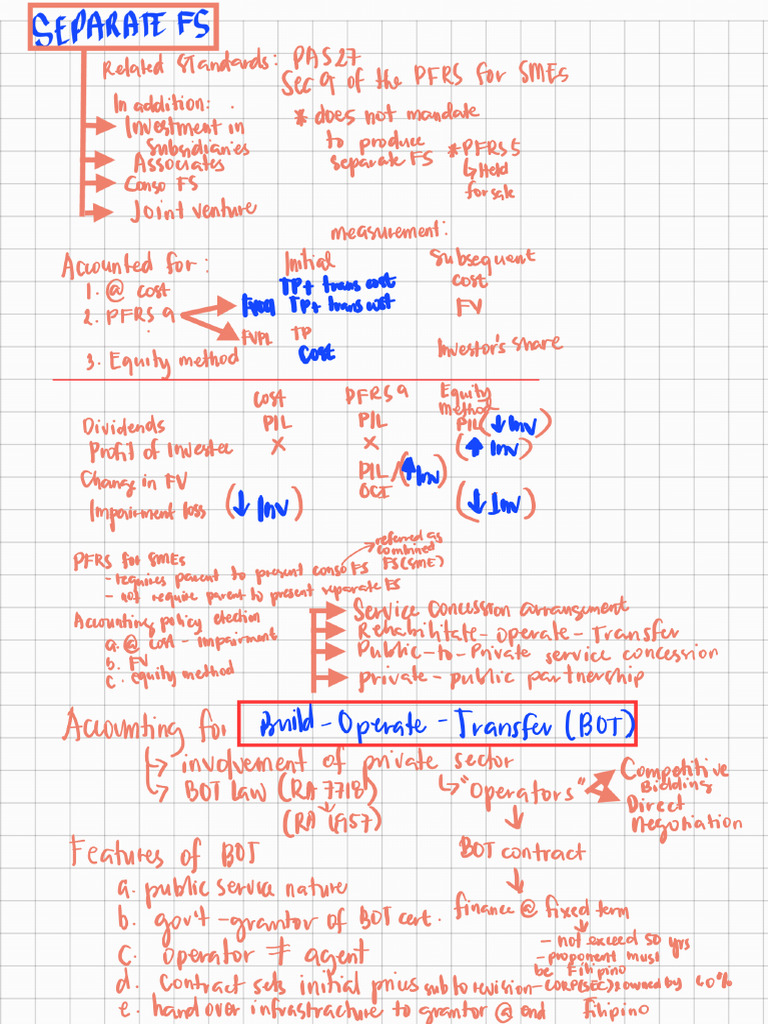 SEPARATE FS
Related Standards: PAS 27
Sec 9 of the PFRS for SMEs
In addition:
Investment in
Subsidiaries
Associates
Conso FS
Joint venture
* does not mandate
to produce
separate FS
* PFRS 5
↳ Held
for sale
measurement:
Accounted for: Initial Subsequent
1. @ cost TP + trans cost cost
2. PFRS 9 TP + trans cost FV
FVPL TP
3. Equity method Cost Investor's share
Cost PFRS 9 Equity
method
Dividends P/L P/L P/L (↓ Inv)
Profit of Investee X X (↑ Inv)
Change in FV P/L / (↑ Inv)
OCI
Impairment loss (↓ Inv) (↓ Inv)
PFRS for SMEs
- requires parent to present conso FS → referred as
combined
FS (SME)
- not require parent to present separate FS
Accounting policy election
a. @ cost - impairment
b. FV
c. equity method
Service Concession arrangement
Rehabilitate - Operate - Transfer
Public-to-Private service concession
private - public partnership
Accounting for Build - Operate - Transfer (BOT)
↳ involvement of private sector
↳ BOT Law (RA 7718)
(RA 6957)
↳ "Operators"
Competitive
Bidding
Direct
Negotiation
BOT contract
finance @ fixed term
- not exceed 50 yrs
- proponent must
be Filipino
- CORP (SEC) owned by 60%
Filipino
Features of BOT
a. public service nature
b. gov't - grantor of BOT cert.
c. operator ≠ agent
d. Contract sets initial prices sub to revision
e. hand over infrastructure to grantor @ end